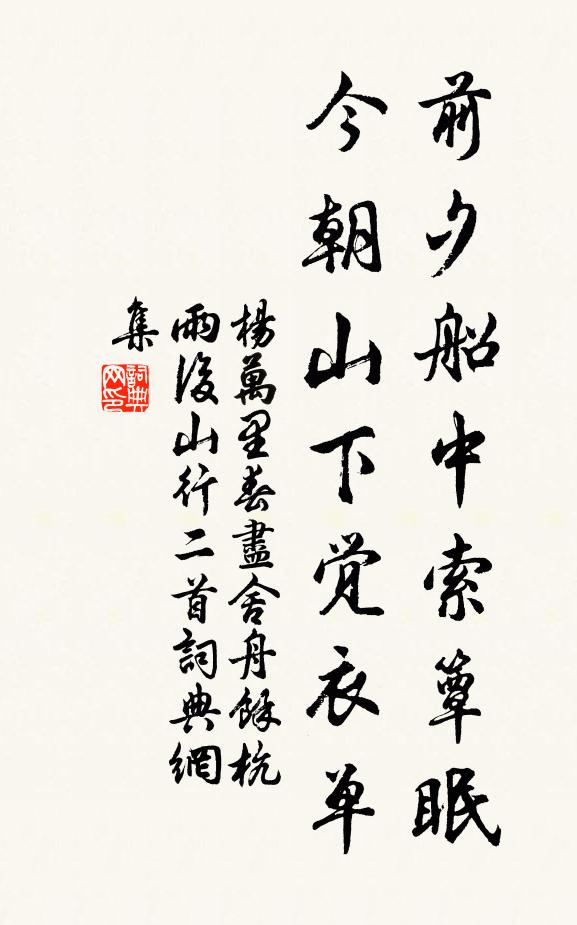 前夕船中索簟眠
今朝山下觉衣单
楊萬里春盡舍舟餘杭
雨後山行二首詞典網
集
詞典
网印